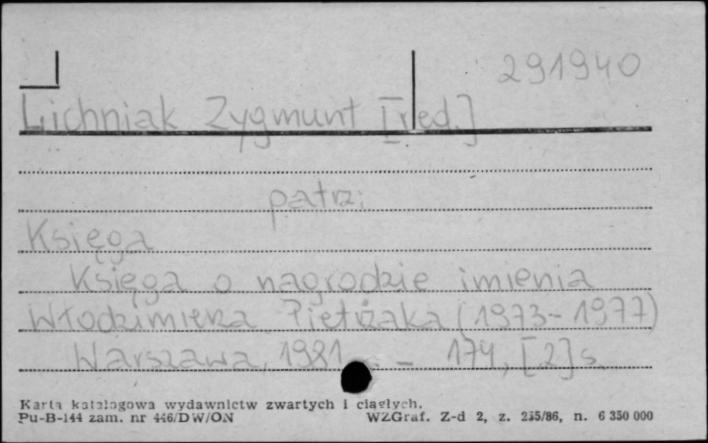 291940
Lichniak Zygmunt [red.]
patrz:
Księga
Księga o nagrodzie imienia
Włodzimierza Pietrzaka (1973-1977)
Warszawa, 1981 - 174, [2] s.
Karta katalogowa wydawnictw zwartych i ciągłych.
Pu-B-144 zam. nr 446/DW/ON WZGraf. Z-d 2, z. 235/86, n. 6 350 000